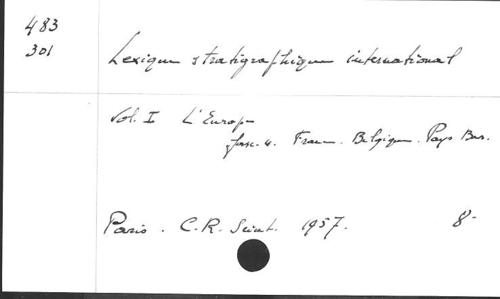 483
301
Lexique stratigraphique international
Vol. I L'Europe
fasc. 4. France. Belgique. Pays Bas.
Paris. C.R. Scient. 1957. 8-